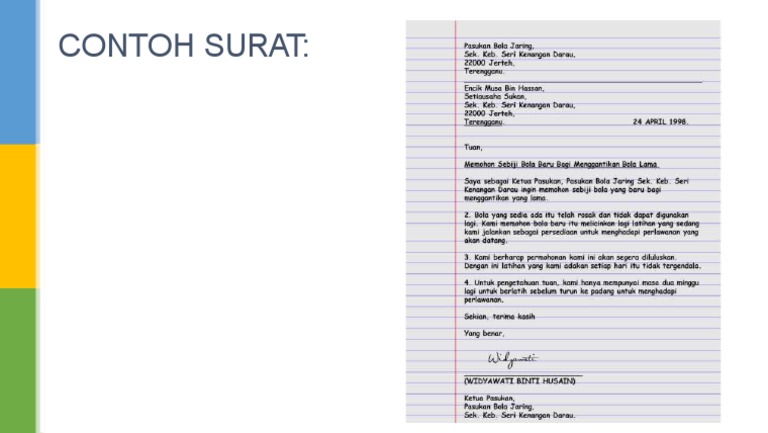 CONTOH SURAT:
Pasukan Bola Jaring,
Sek. Keb. Seri Kenangan Darau,
22000 Jerteh,
Terengganu.
Encik Musa Bin Hassan,
Setiausaha Sukan,
Sek. Keb. Seri Kenangan Darau,
22000 Jerteh,
Terengganu. 24 APRIL 1998.
Tuan,
Memohon Sebiji Bola Baru Bagi Menggantikan Bola Lama.
Saya sebagai Ketua Pasukan, Pasukan Bola Jaring Sek. Keb. Seri
Kenangan Darau ingin memohon sebiji bola yang baru bagi
menggantikan yang lama.
2. Bola yang sedia ada itu telah rosak dan tidak dapat digunakan
lagi. Kami memohon bola baru itu melicinkan lagi latihan yang sedang
kami jalankan sebagai persediaan untuk menghadapi perlawanan yang
akan datang.
3. Kami berharap permohonan kami ini akan segera diluluskan.
Dengan ini latihan yang kami adakan setiap hari itu tidak tergendala.
4. Untuk pengetahuan tuan, kami hanya mempunyai masa dua minggu
lagi untuk berlatih sebelum turun ke padang untuk menghadapi
perlawanan.
Sekian, terima kasih
Yang benar,
Widyawati
(WIDYAWATI BINTI HUSAIN)
Ketua Pasukan,
Pasukan Bola Jaring,
Sek. Keb. Seri Kenangan Darau.